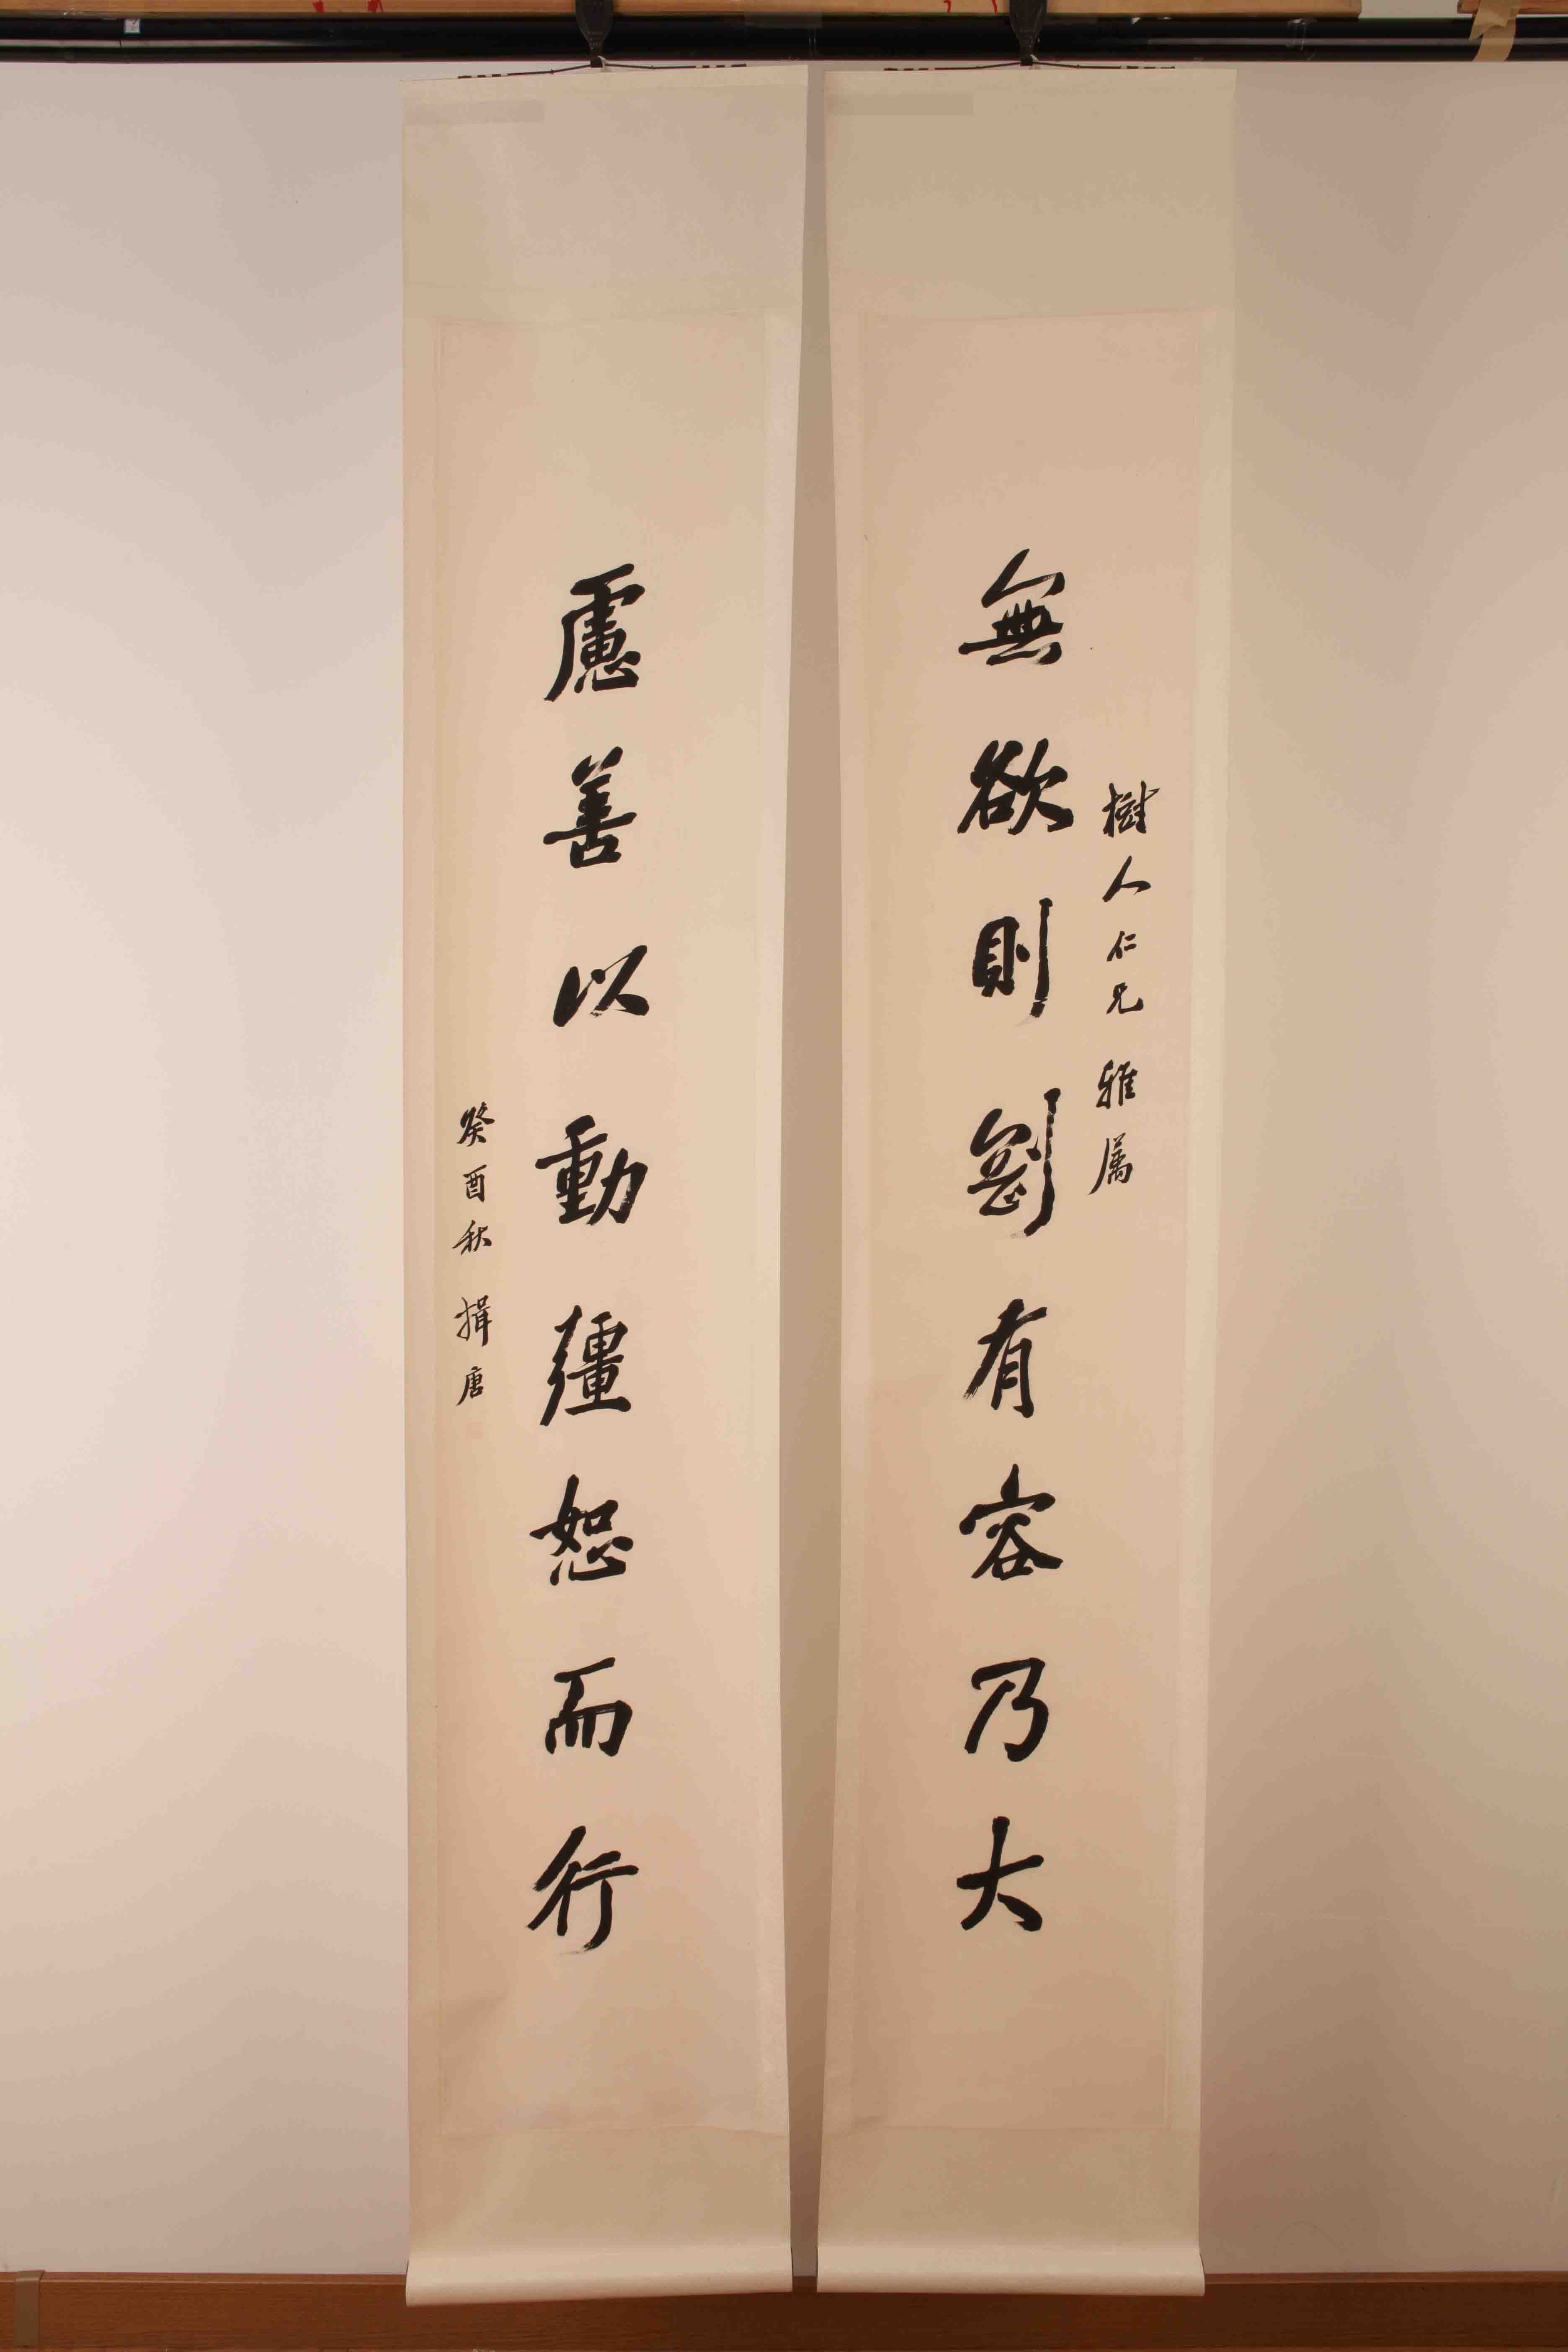 樹人仁兄雅属
無欲則剛有容乃大
慮善以動彊恕而行
癸酉秋揖唐